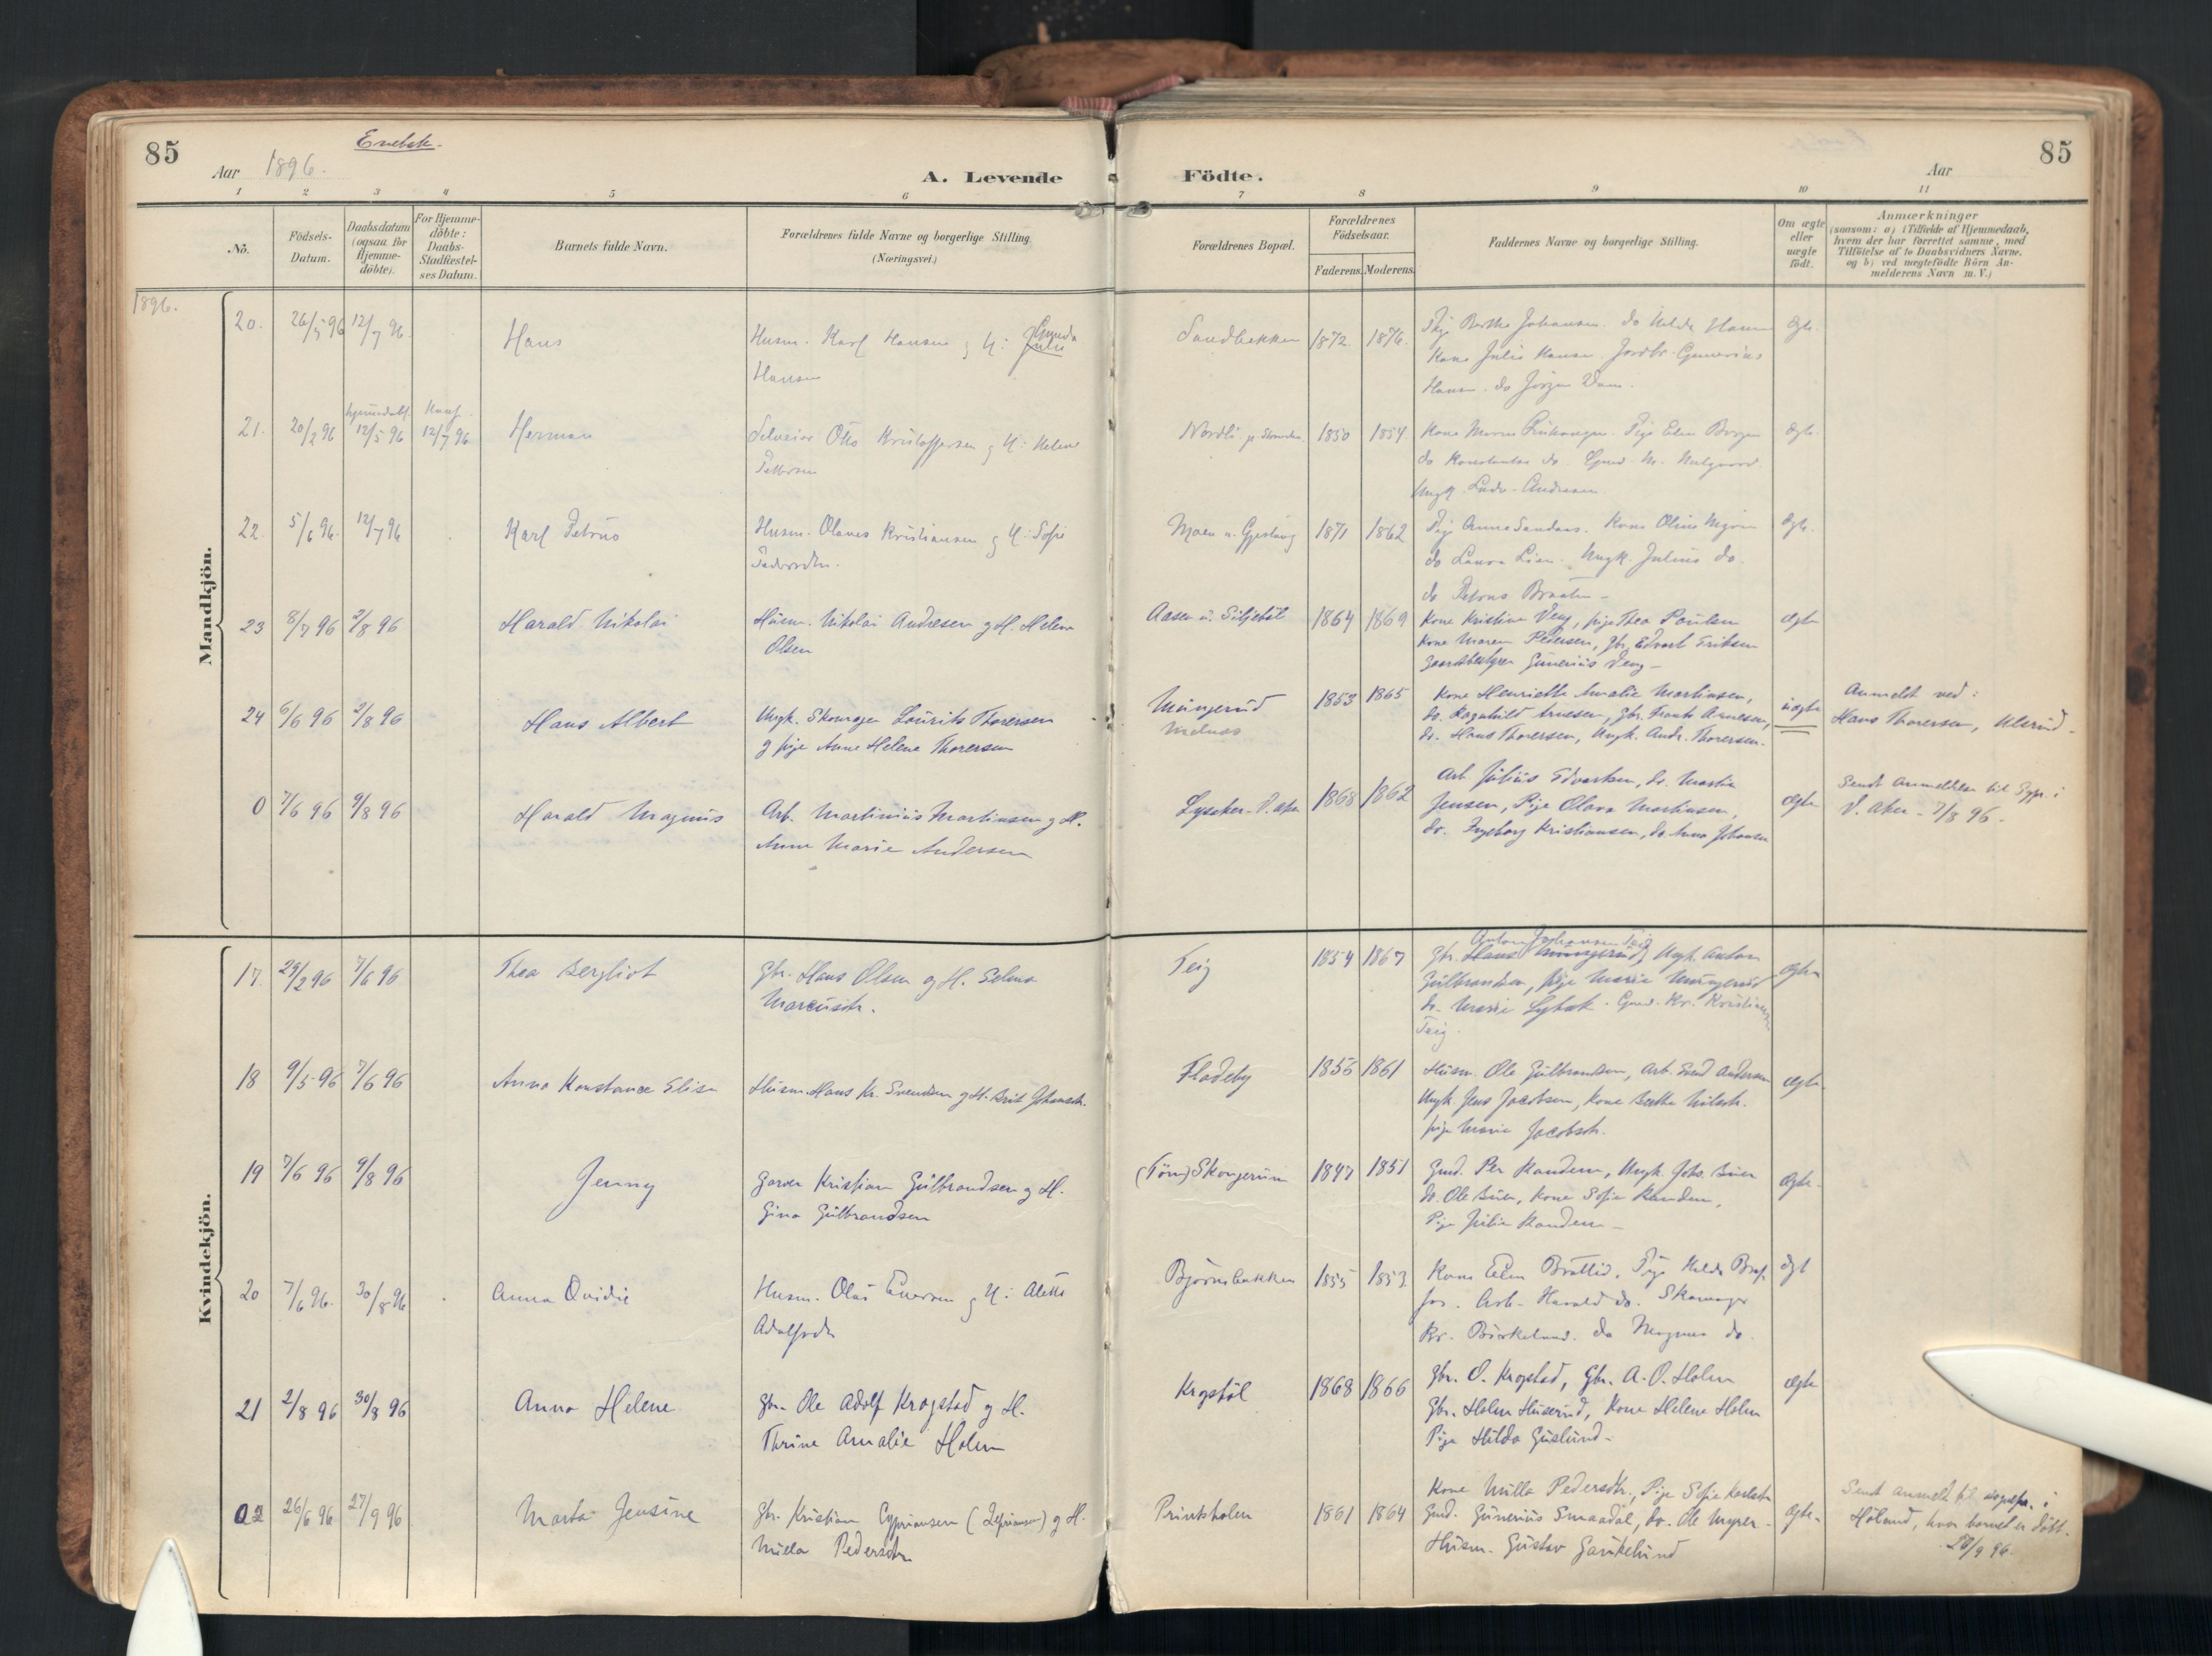 85
Enebak.
Aar 1896.
A. Levende
Födte.
Aar
85
1 2 3 4 5 6 7 8 9 10 11
No.
Födsels-
Datum.
Daabsdatum
(ogsaa for
Hjemme-
döbte).
For Hjemme-
döbte:
Daabs-
Stadfæstel-
ses Datum.
Barnets fulde Navn.
Forældrenes fulde Navne og borgerlige Stilling.
(Næringsvei.)
Forældrenes Bopæl.
Forældrenes
Födselsaar.
Faderens. Moderens.
Faddernes Navne og borgerlige Stilling.
Om ægte
eller
uægte
födt.
Anmærkninger
(saasom: a) i Tilfælde af Hjemmedaab,
hvem der har forrettet samme, med
Tilföielse af to Daabsvidners Navne.
og b) ved uægtefödte Börn An-
melderens Navn m. V.)
1896.
Mandkjön.
20. 26/5 96 12/7 96. Hans
Husm. Karl Hansen g H: Gunda
Hansen
Sandbakken 1872. 1876.
Pige Berthe Johansen. do Hilda Hansen
Kone Julie Hansen. Jordbr. Gunerius
Hansen. do Jörgen Dam.
ægte.
21. 20/2 96 hjemmedøbt 12/5 96 Konf. 12/7 96 Herman
Selveier Otto Kristoffersen g H: Helene
Pettersen
Nordli 1850 1854
Ungk. Ludv. Andresen
ægte.
22. 5/6 96. 12/7 96 Karl Petrus
Husm. Olaves Kristiansen g H: Sofie
Pedersdtr.
Moen u. Gjeslung 1871 1862
do Laura Lien. Ungk. Julius do.
do Petrus Braaten -
ægte.
23 8/7 96 2/8 96 Harald Nikolai
Husm. Nikolai Andresen g H. Helene
Olsen
Aasen u. Siljebøl 1864 1869
Kone Kristine Veng, pige Thea Poulsen
Kone Maren Pedersen, Gbr. Edvart Eriksen
Gaardbestyrer Gunerius Veng -
ægte
24 6/6 96 2/8 96 Hans Albert
Ungk. Skomager Laurits Thoresen
g pige Anne Helene Thoresen
Mungerud 1853 1865
Melnes
Kone Henriette Amalie Martinsen,
do. Ragnhild Arnesen, Gbr. Frants Arnesen,
do. Hans Thoresen, Ungk. Andr. Thoresen.
uægte
Anmeldt ved:
Hans Thoresen, Ulerud.
0 7/6 96 9/8 96 Harald Magnus
Arb. Martinius Martinsen g H.
Anne Marie Andersen
Lysaker - V. Aker 1868 1862
Arb. Julius Edvartsen, do. Martin
Jensen, Pige Olava Martinsen,
do. Ingeborg Kristiansen, do. Anna Johansen
ægte
Sendt anmeldelse til Sgpr. i
V. Aker - 7/8 96.
Kvindekjön.
17. 29/2 96 7/6 96 Thea Bergliot
Gbr. Hans Olsen g H. Selma
Marcusdtr.
Teig 1854 1867
Anton Johansen Teig
Gbr. Hans Mungerud, Ungk. Anton
Gulbrandsen, pige Marie Mungerud
do. Marie Lybæk. Gmd. Kr. Kristiansen
Teig.
ægte
18 9/5 96 7/6 96 Anna Konstance Elise
Husm. Hans Kr. Svendsen g H. Brit Johansdtr.
Fladeby 1856 1861
Husm. Ole Gulbrandsen, Arb. Svend Andersen
Ungk. Jens Jacobsen, Kone Berthe Nilsdtr.
pige Marie Jacobsdtr.
ægte.
19 7/6 96 9/8 96 Jenny
Garver Kristian Gulbrandsen g H.
Gina Gulbrandsen
(Tom) Skongerum 1847 1851
Gmd. Per Randem, Ungk. Johs. Buer
do. Ole Buer, Kone Sofie Randem,
Pige Julie Randem -
ægte.
20 7/6 96. 30/8 96 Anna Ovidie
Husm. Olaus Enersen g H: Alette
Adolfsdtr
Bjørnebakken 1855 1853
Arb. Harald do. Skomager
Kr. Birkelund. do Magnus do.
ægt
21 2/8 96 30/8 96 Anna Helene
Gbr. Ole Adolf Kragstad g H.
Thrine Amalie Holm
Kragstøl 1868 1866
Gbr. O. Kragstad, Gbr. A. O. Holm
Gbr. Holm Huserud, Kone Helene Holm
Pige Hilda Guslund -
ægte
02 26/6 96 27/9 96 Marta Jensine
Gbr. Kristian Cypriansen (Zefriansen) g H.
Milla Pedersdtr.
Printsholen 1861 1864
Kone Milla Pedersdtr., Pige Sofie Karlsdtr
Gmd. Gunerius Smaadal, do. Ole Myrer -
Husm. Gustav Gankelund
ægte.
Sendt anmeldt til sognepr. i
Høland, hvor barnet er født.
28/9 96.